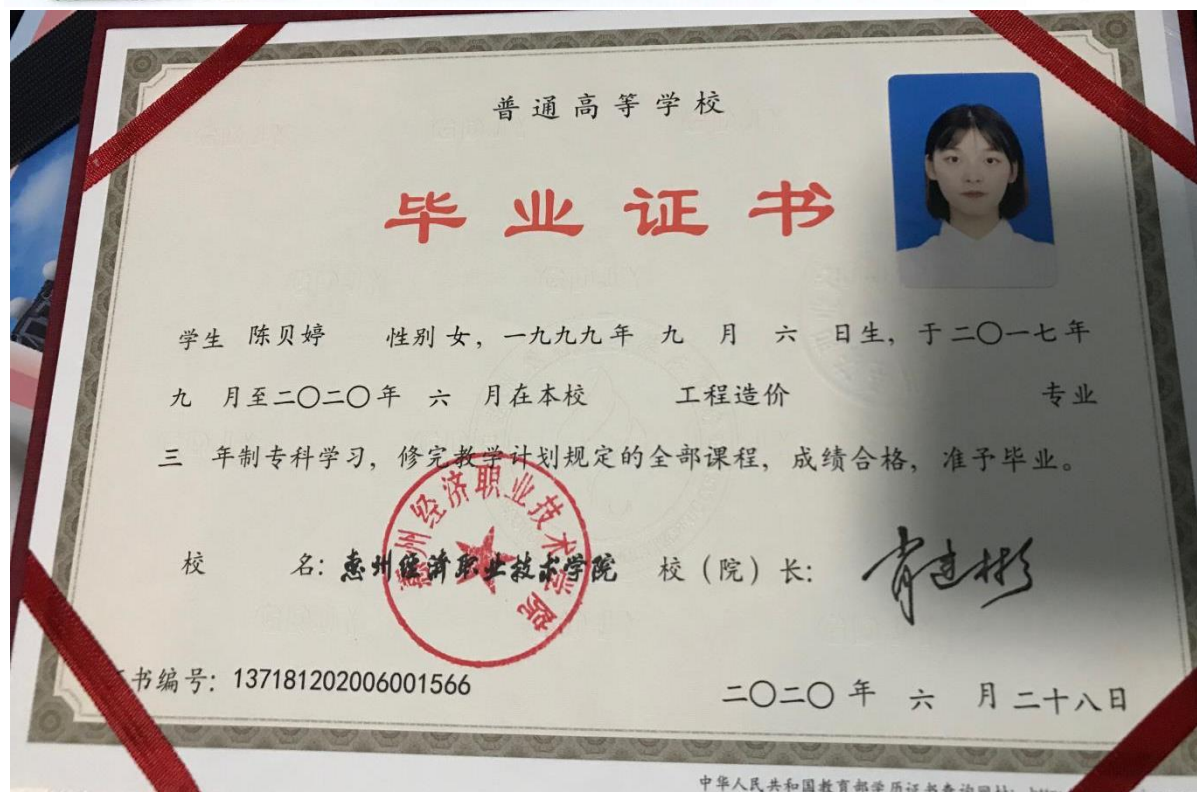 普通高等学校
毕业证书
学生 陈贝婷 性别 女，一九九九年 九 月 六 日生，于二〇一七年
九 月至二〇二〇年 六 月在本校 工程造价 专业
三 年制专科学习，修完教学计划规定的全部课程，成绩合格，准予毕业。
校 名：惠州经济职业技术学院 校（院）长：肖建彬
惠州经济职业技术学院
书编号：137181202006001566
二〇二〇年 六 月二十八日
中华人民共和国教育部学历证书查询网址：